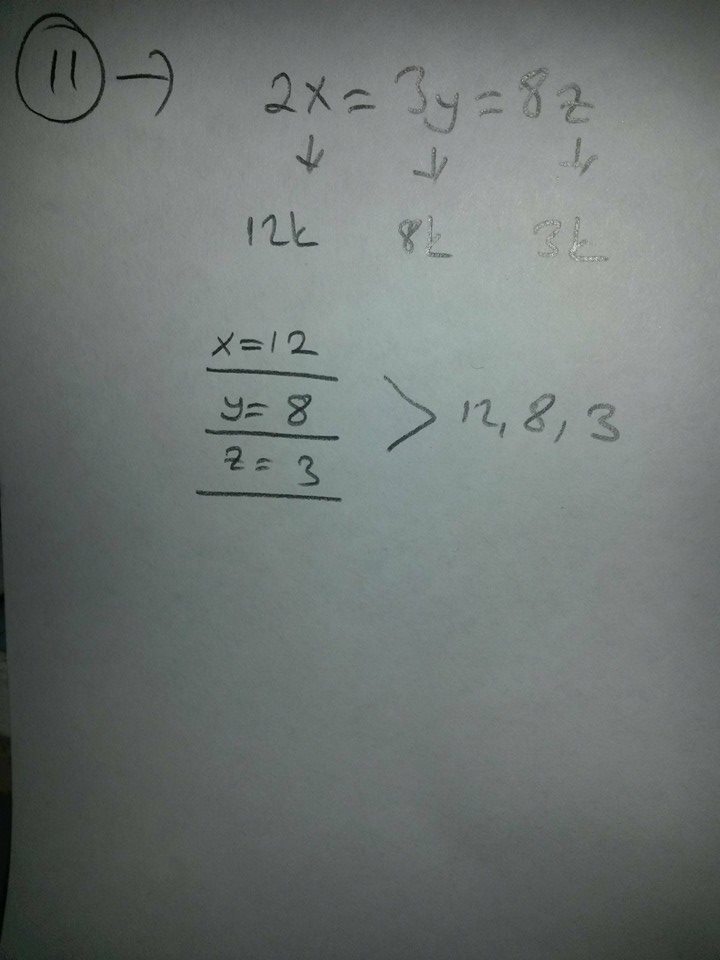 11 → 2x = 3y = 8z
↓ ↓ ↓
12k 8k 3k
x=12
y= 8
z= 3
> 12, 8, 3